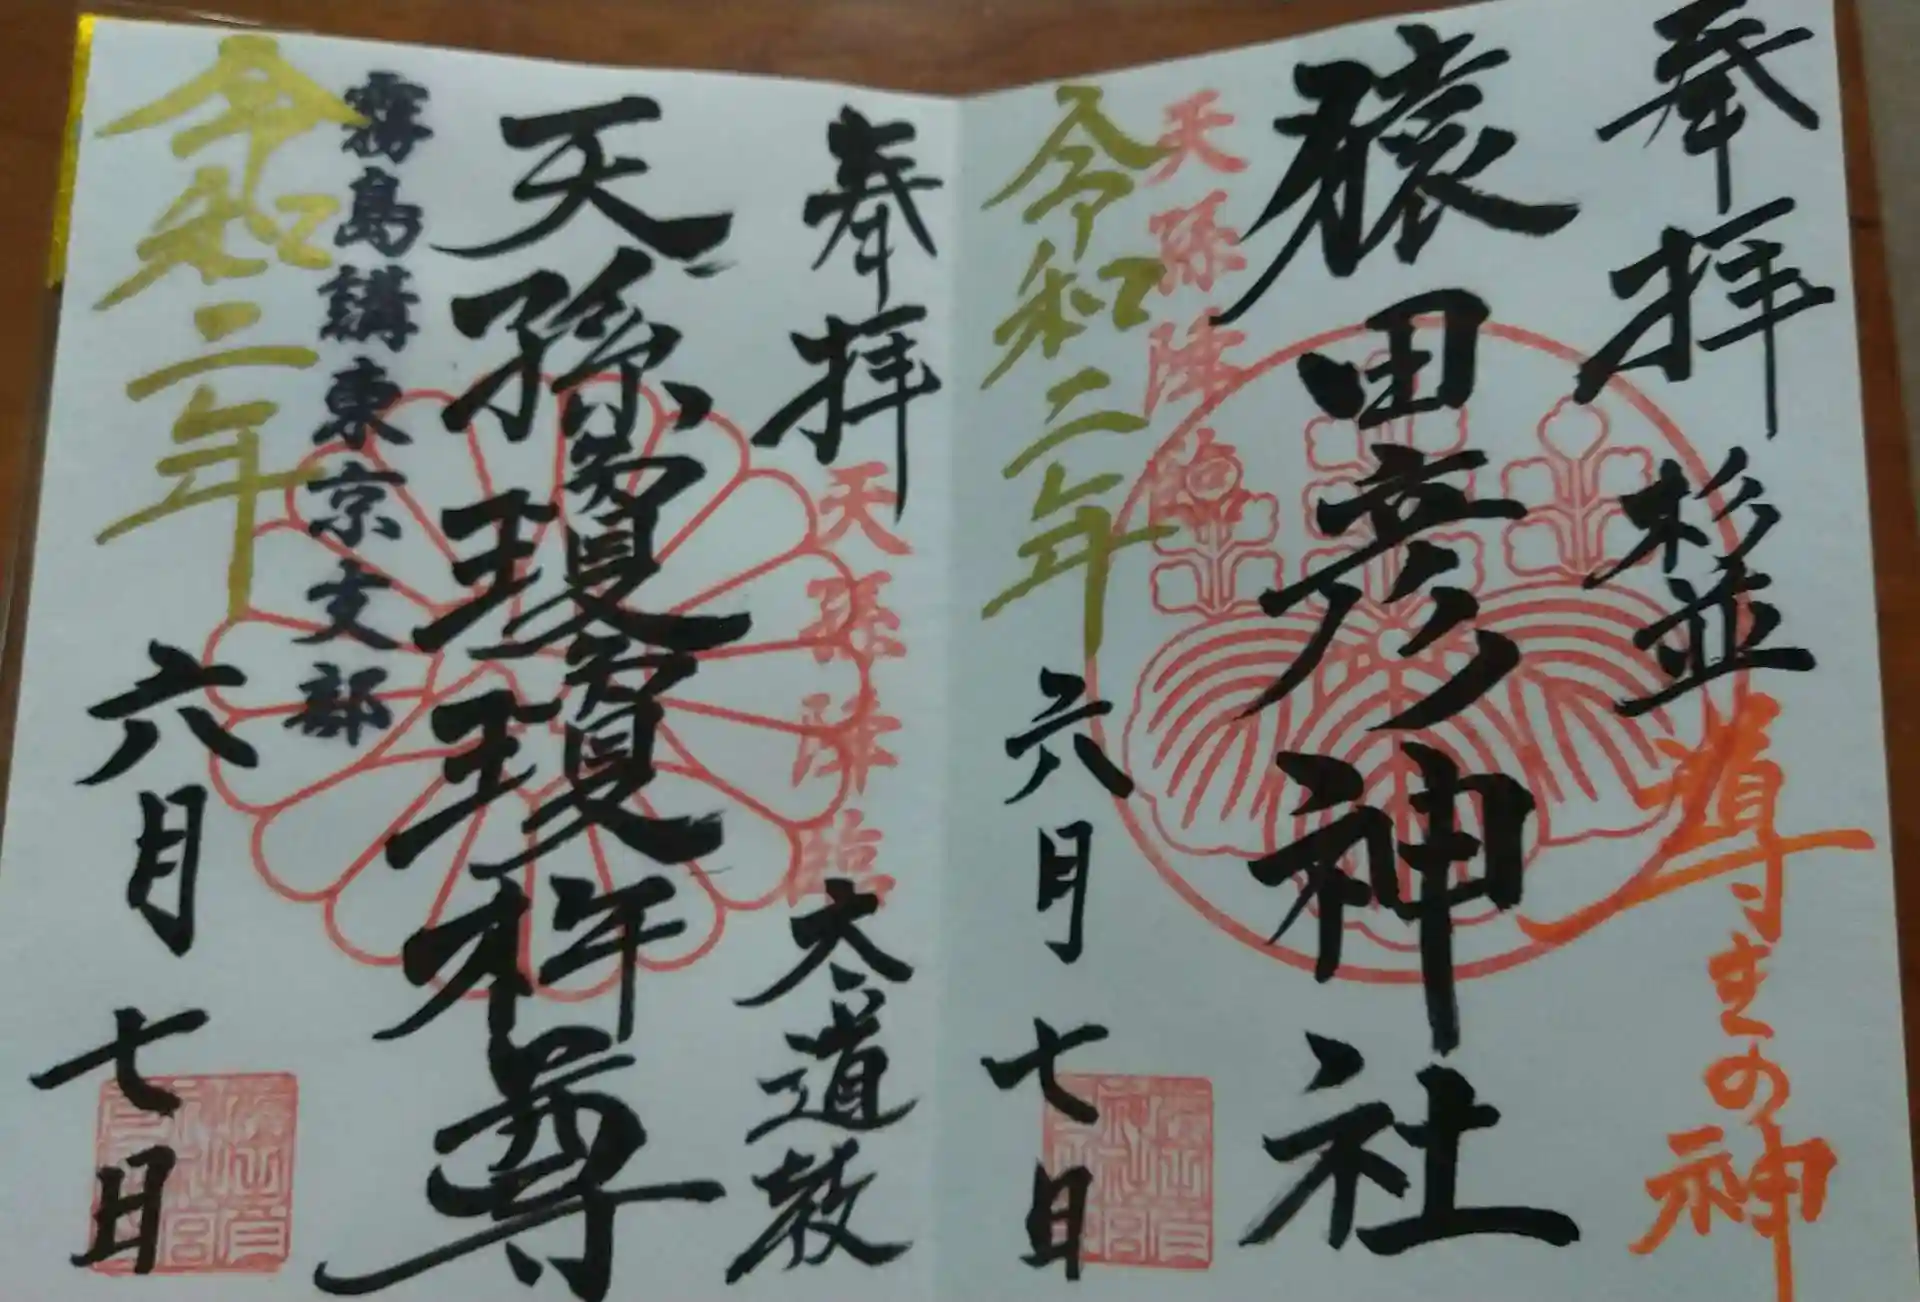 奉拝 杉並
導きの神
猿田彦神社
天孫降臨
令和二年 六月 七日
奉拝
天孫降臨
太道教
天孫瓊瓊杵尊
霧島講東京支部
令和二年 六月 七日